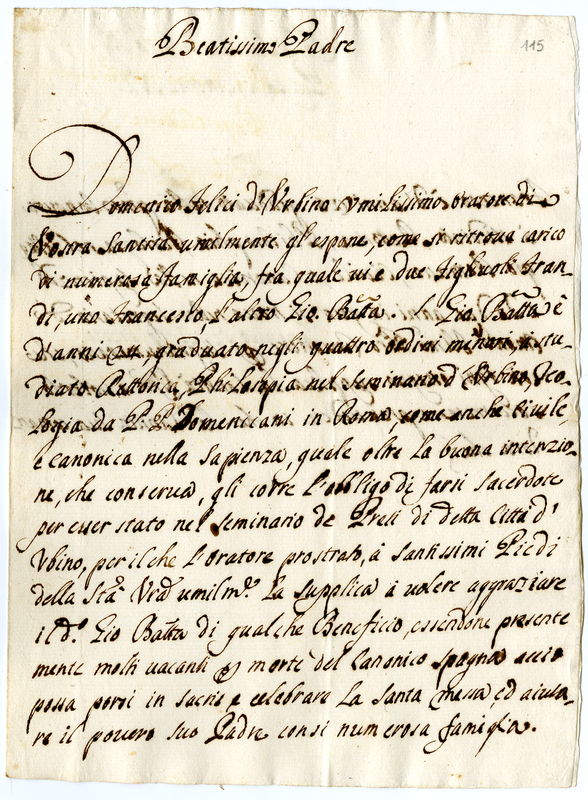 Beatissimo Padre
115
Domenico Felici d'Urbino umilissimo oratore di
Vostra Santità umilmente gl'espone, come si ritrova carico
di numerosa famiglia, fra quale vi è due figliuoli gran-
di, uno Francesco, l'altro Gio. Batta. Gio. Batta è
d'anni graduato negli quattro ordini minori, à stu-
diato Rettorica, Philosopia nel seminario d'Urbino, Teo-
logia da P.P. Domenicani in Roma come anche civile,
e canonica nella Sapienza, quale oltre la buona intenzio-
ne, che conserva, gli corre l'obbligo di farsi sacerdote
per esser stato nel seminario de Preti di detta Città d'
Vbino, per il che l'oratore prostrato, à santissimi Piedi
della Stà Vra umilmte la supplica à volere aggraziare
il do Gio Batta di qualche Beneficio, essendone presente
mente molti vacanti morte del Canonico Spagna acciò
possa porsi in sacris e celebrare la santa messa, ed aiuta-
re il povero suo Padre consi numerosa famiglia.